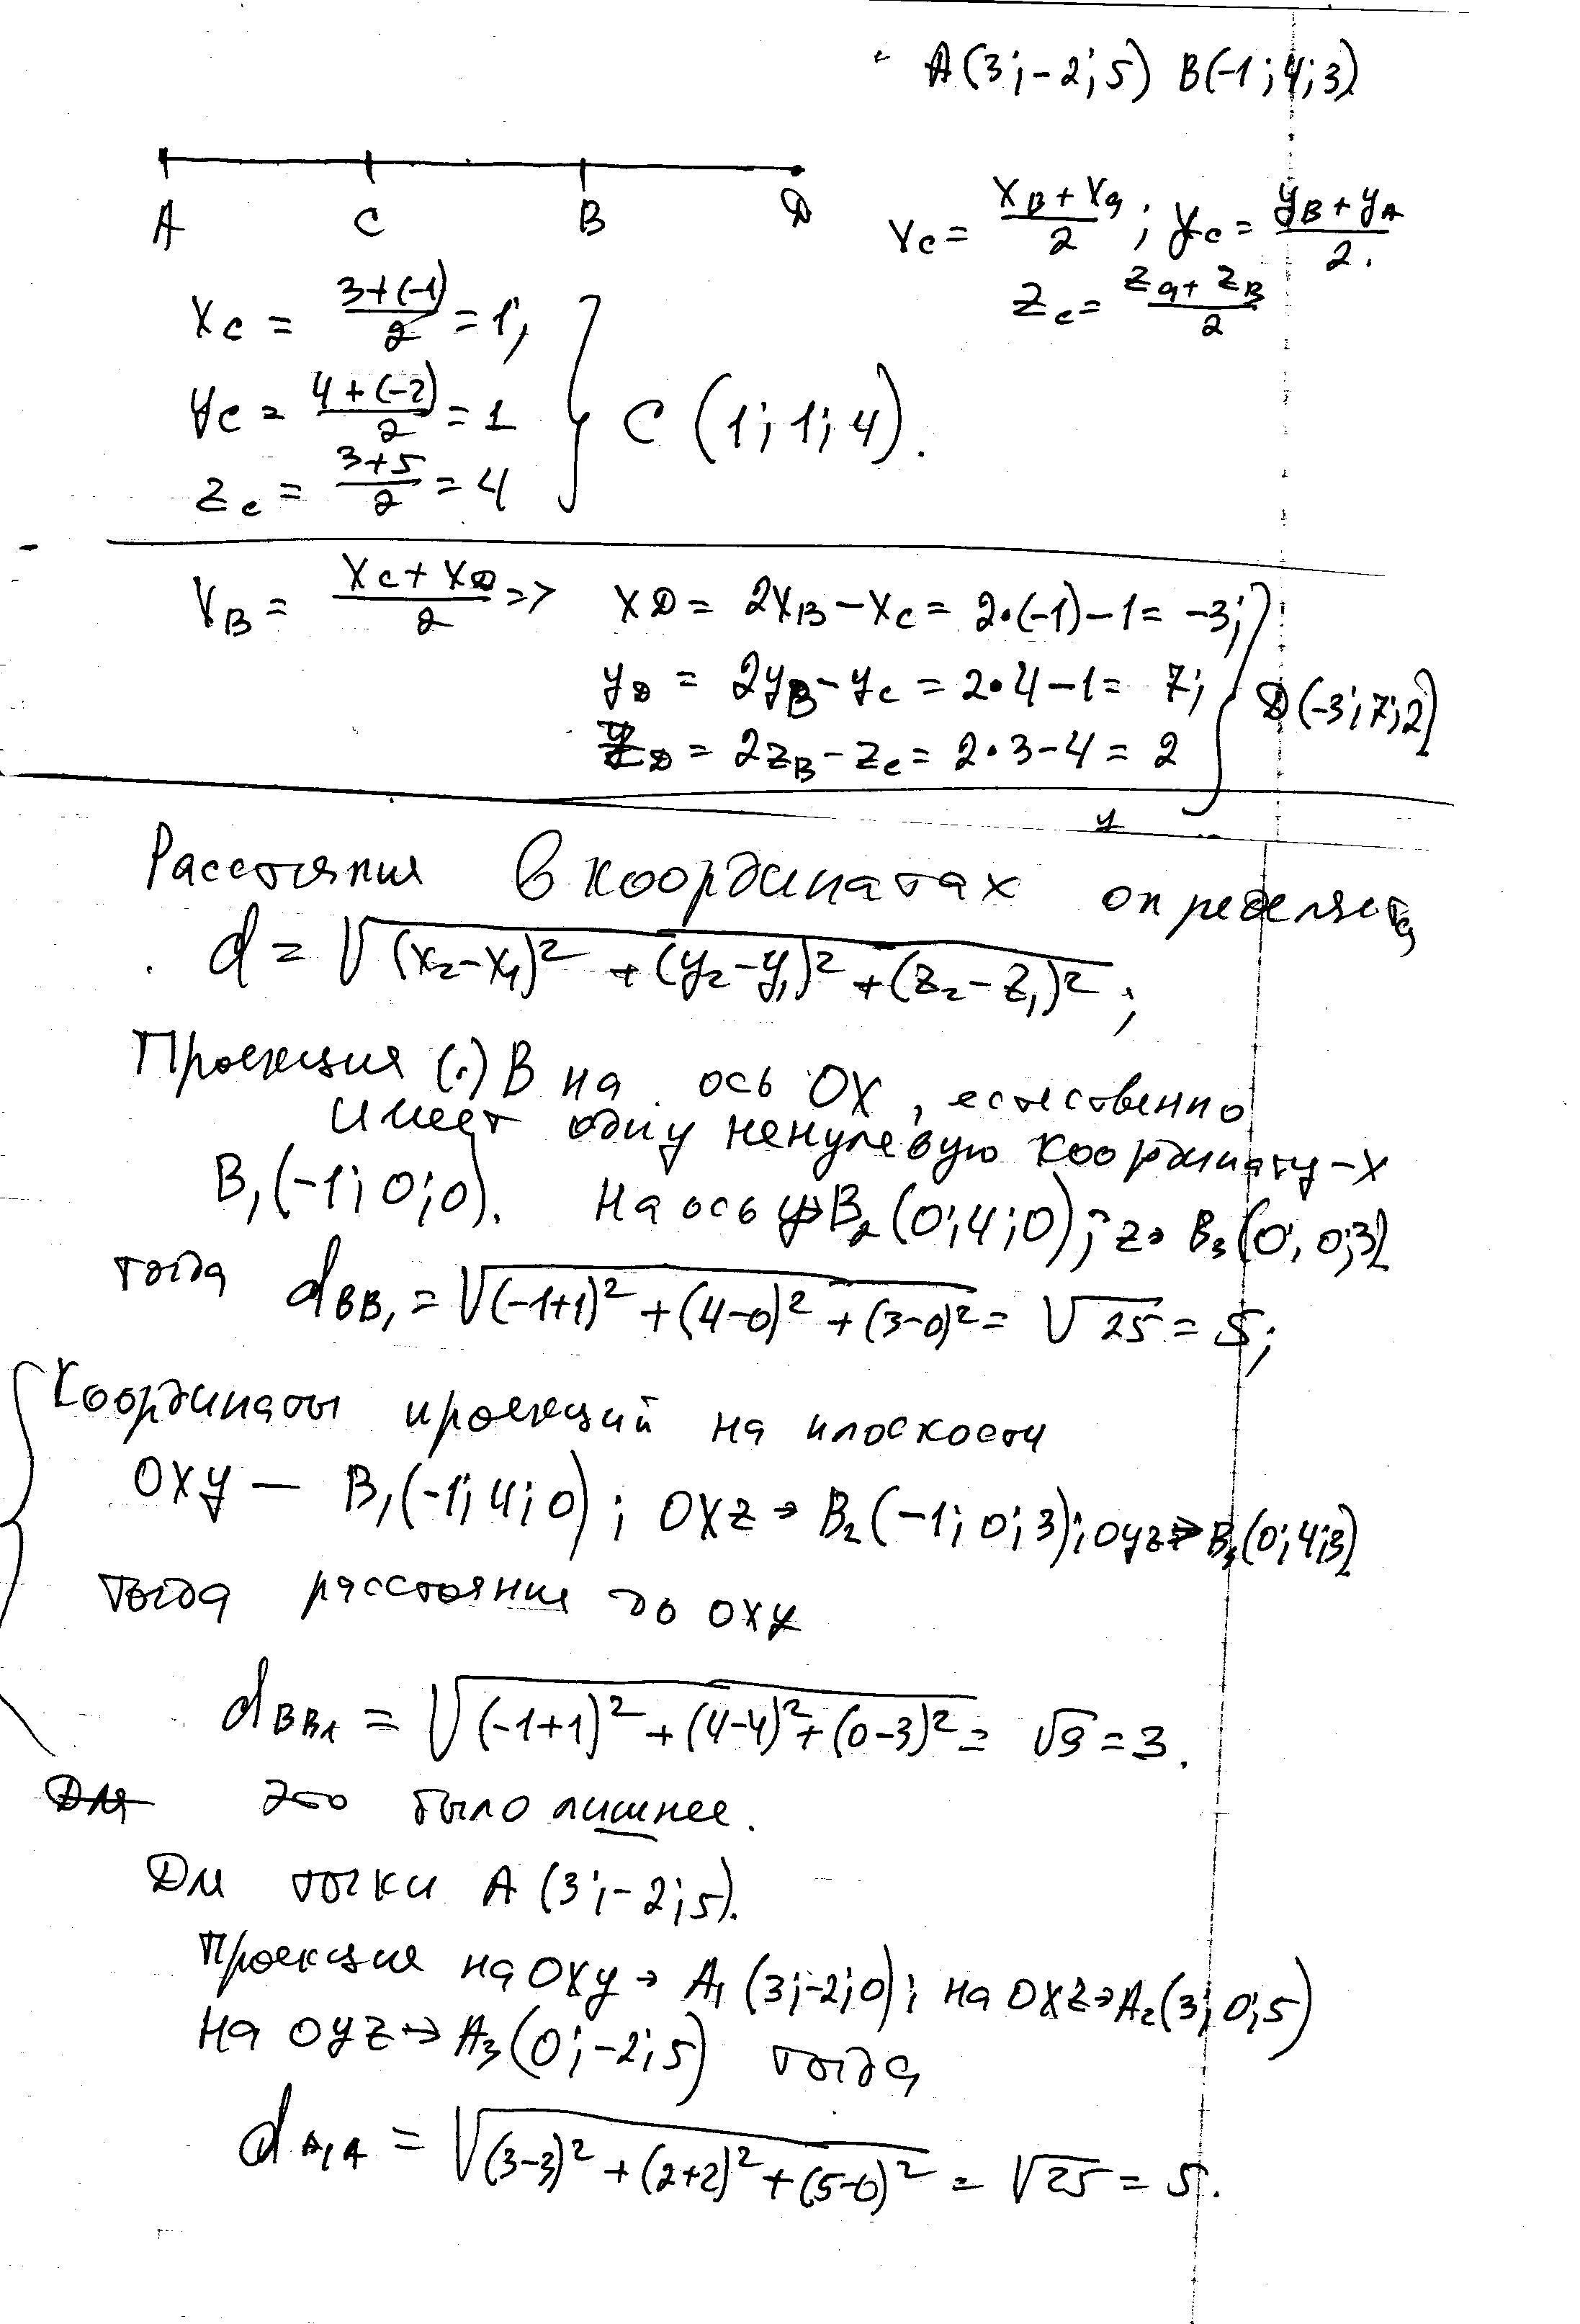 A(3;-2;5) B(-1;4;3)
A C B D
x_C = (x_B + x_A)/2; y_C = (y_B + y_A)/2.
z_C = (z_A + z_B)/2
x_C = (3+(-1))/2 = 1;
y_C = (4+(-2))/2 = 1
z_C = (3+5)/2 = 4
C (1; 1; 4).
x_B = (x_C + x_D)/2 => x_D = 2x_B - x_C = 2·(-1)-1 = -3;
y_D = 2y_B - y_C = 2·4-1 = 7;
z_D = 2z_B - z_C = 2·3-4 = 2
D(-3;7;2)
y
Расстояния в координатах определяется
d = √((x₂-x₁)² + (y₂-y₁)² + (z₂-z₁)²);
Проекция (.) B на ось OX, естественно
имеет одну ненулевую координату - x
B₁(-1; 0; 0). на ось y→B₂(0;4;0); z→ B₃(0; 0;3)
тогда d_BB₁ = √((-1+1)² + (4-0)² + (3-0)²) = √25 = 5;
Координаты проекций на плоскости
OXY — B₁(-1; 4; 0); OXZ → B₂(-1; 0; 3); OYZ → B₃(0; 4;3)
тогда расстояние до OXY
d_BB₁ = √((-1+1)² + (4-4)² + (0-3)²) = √9 = 3.
Для это было лишнее.
Для точки A (3;-2;5).
Проекция на OXY → A₁ (3;-2;0); на OXZ → A₂(3; 0;5)
на OYZ → A₃(0;-2;5) тогда
d_A₁A = √((3-3)² + (2+2)² + (5-0)²) = √25 = 5.